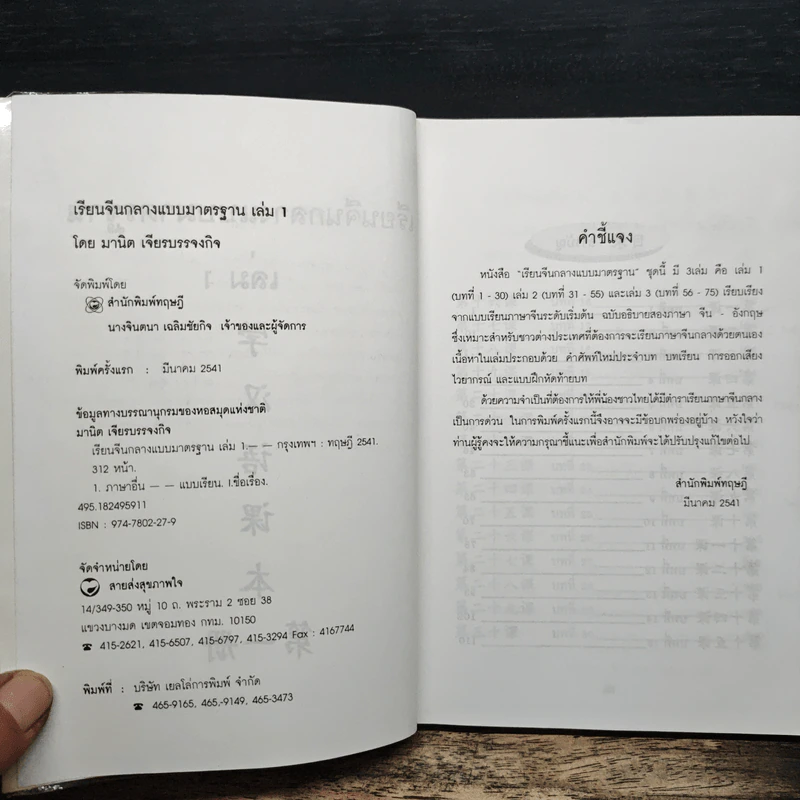 เรียนจีนกลางแบบมาตรฐาน เล่ม 1
โดย มานิต เจียรบรรจงกิจ
จัดพิมพ์โดย
สำนักพิมพ์ทฤษฎี
นางจินตนา เฉลิมชัยกิจ เจ้าของและผู้จัดการ
พิมพ์ครั้งแรก : มีนาคม 2541
ข้อมูลทางบรรณานุกรมของหอสมุดแห่งชาติ
มานิต เจียรบรรจงกิจ
เรียนจีนกลางแบบมาตรฐาน เล่ม 1.— — กรุงเทพฯ : ทฤษฎี 2541.
312 หน้า.
1. ภาษาอื่น — — แบบเรียน. I.ชื่อเรื่อง.
495.182495911
ISBN : 974-7802-27-9
จัดจำหน่ายโดย
สายส่งสุขภาพใจ
14/349-350 หมู่ 10 ถ. พระราม 2 ซอย 38
แขวงบางมด เขตจอมทอง กทม. 10150
☎ 415-2621, 415-6507, 415-6797, 415-3294 Fax : 4167744
พิมพ์ที่ : บริษัท เยลโล่การพิมพ์ จำกัด
☎ 465-9165, 465,-9149, 465-3473
คำชี้แจง
หนังสือ "เรียนจีนกลางแบบมาตรฐาน" ชุดนี้ มี 3เล่ม คือ เล่ม 1
(บทที่ 1 - 30) เล่ม 2 (บทที่ 31 - 55) และเล่ม 3 (บทที่ 56 - 75) เรียบเรียง
จากแบบเรียนภาษาจีนระดับเริ่มต้น ฉบับอธิบายสองภาษา จีน - อังกฤษ
ซึ่งเหมาะสำหรับชาวต่างประเทศที่ต้องการจะเรียนภาษาจีนกลางด้วยตนเอง
เนื้อหาในเล่มประกอบด้วย คำศัพท์ใหม่ประจำบท บทเรียน การออกเสียง
ไวยากรณ์ และแบบฝึกหัดท้ายบท
ด้วยความจำเป็นที่ต้องการให้พี่น้องชาวไทยได้มีตำราเรียนภาษาจีนกลาง
เป็นการด่วน ในการพิมพ์ครั้งแรกนี้จึงอาจจะมีข้อบกพร่องอยู่บ้าง หวังใจว่า
ท่านผู้รู้คงจะให้ความกรุณาชี้แนะเพื่อสำนักพิมพ์จะได้ปรับปรุงแก้ไขต่อไป
สำนักพิมพ์ทฤษฎี
มีนาคม 2541